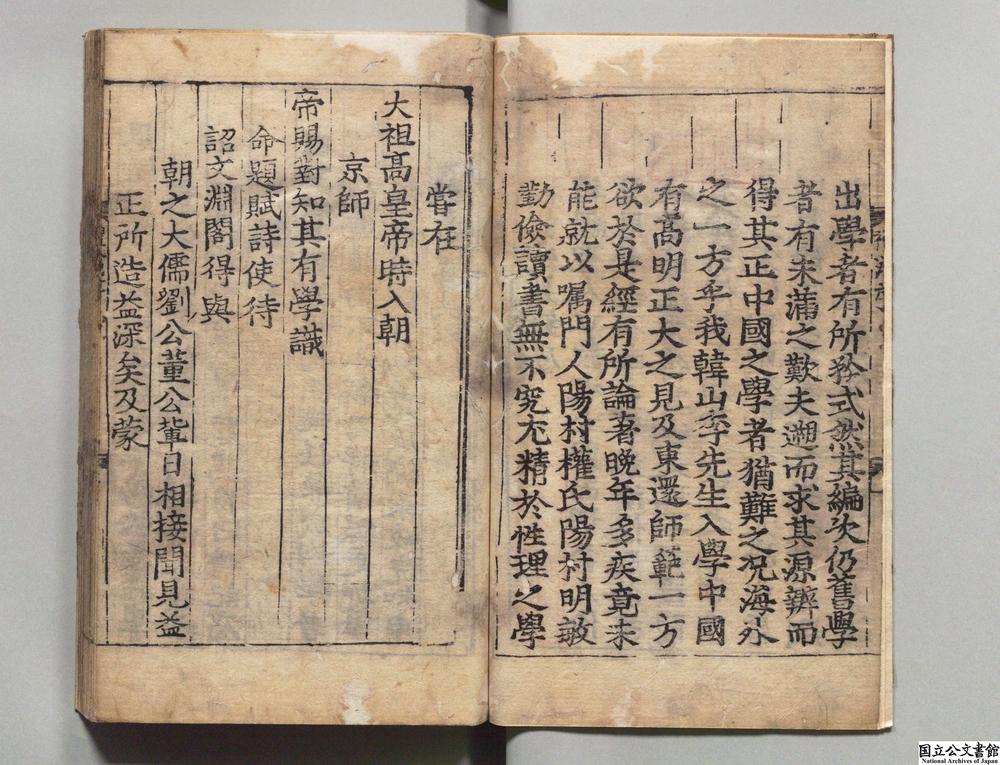 出學者有所矜式然其編次仍舊學
者有未滿之歎夫遡而求其源辨而
得其正中國之學者猶難之况海外
之一方乎我韓山李先生入學中國
有高明正大之見及東還師範一方
欲於是經有所論著晚年多疾竟未
能就以嘱門人陽村權氏陽村明敏
勤儉讀書無不究尤精於性理之學
嘗在
大祖高皇帝時入朝
京師
帝賜對知其有學識
命題賦詩使待
詔文淵閣得與
朝之大儒劉公董公軰日相接聞見益
正所造益深矣及蒙
国立公文書館
National Archives of Japan